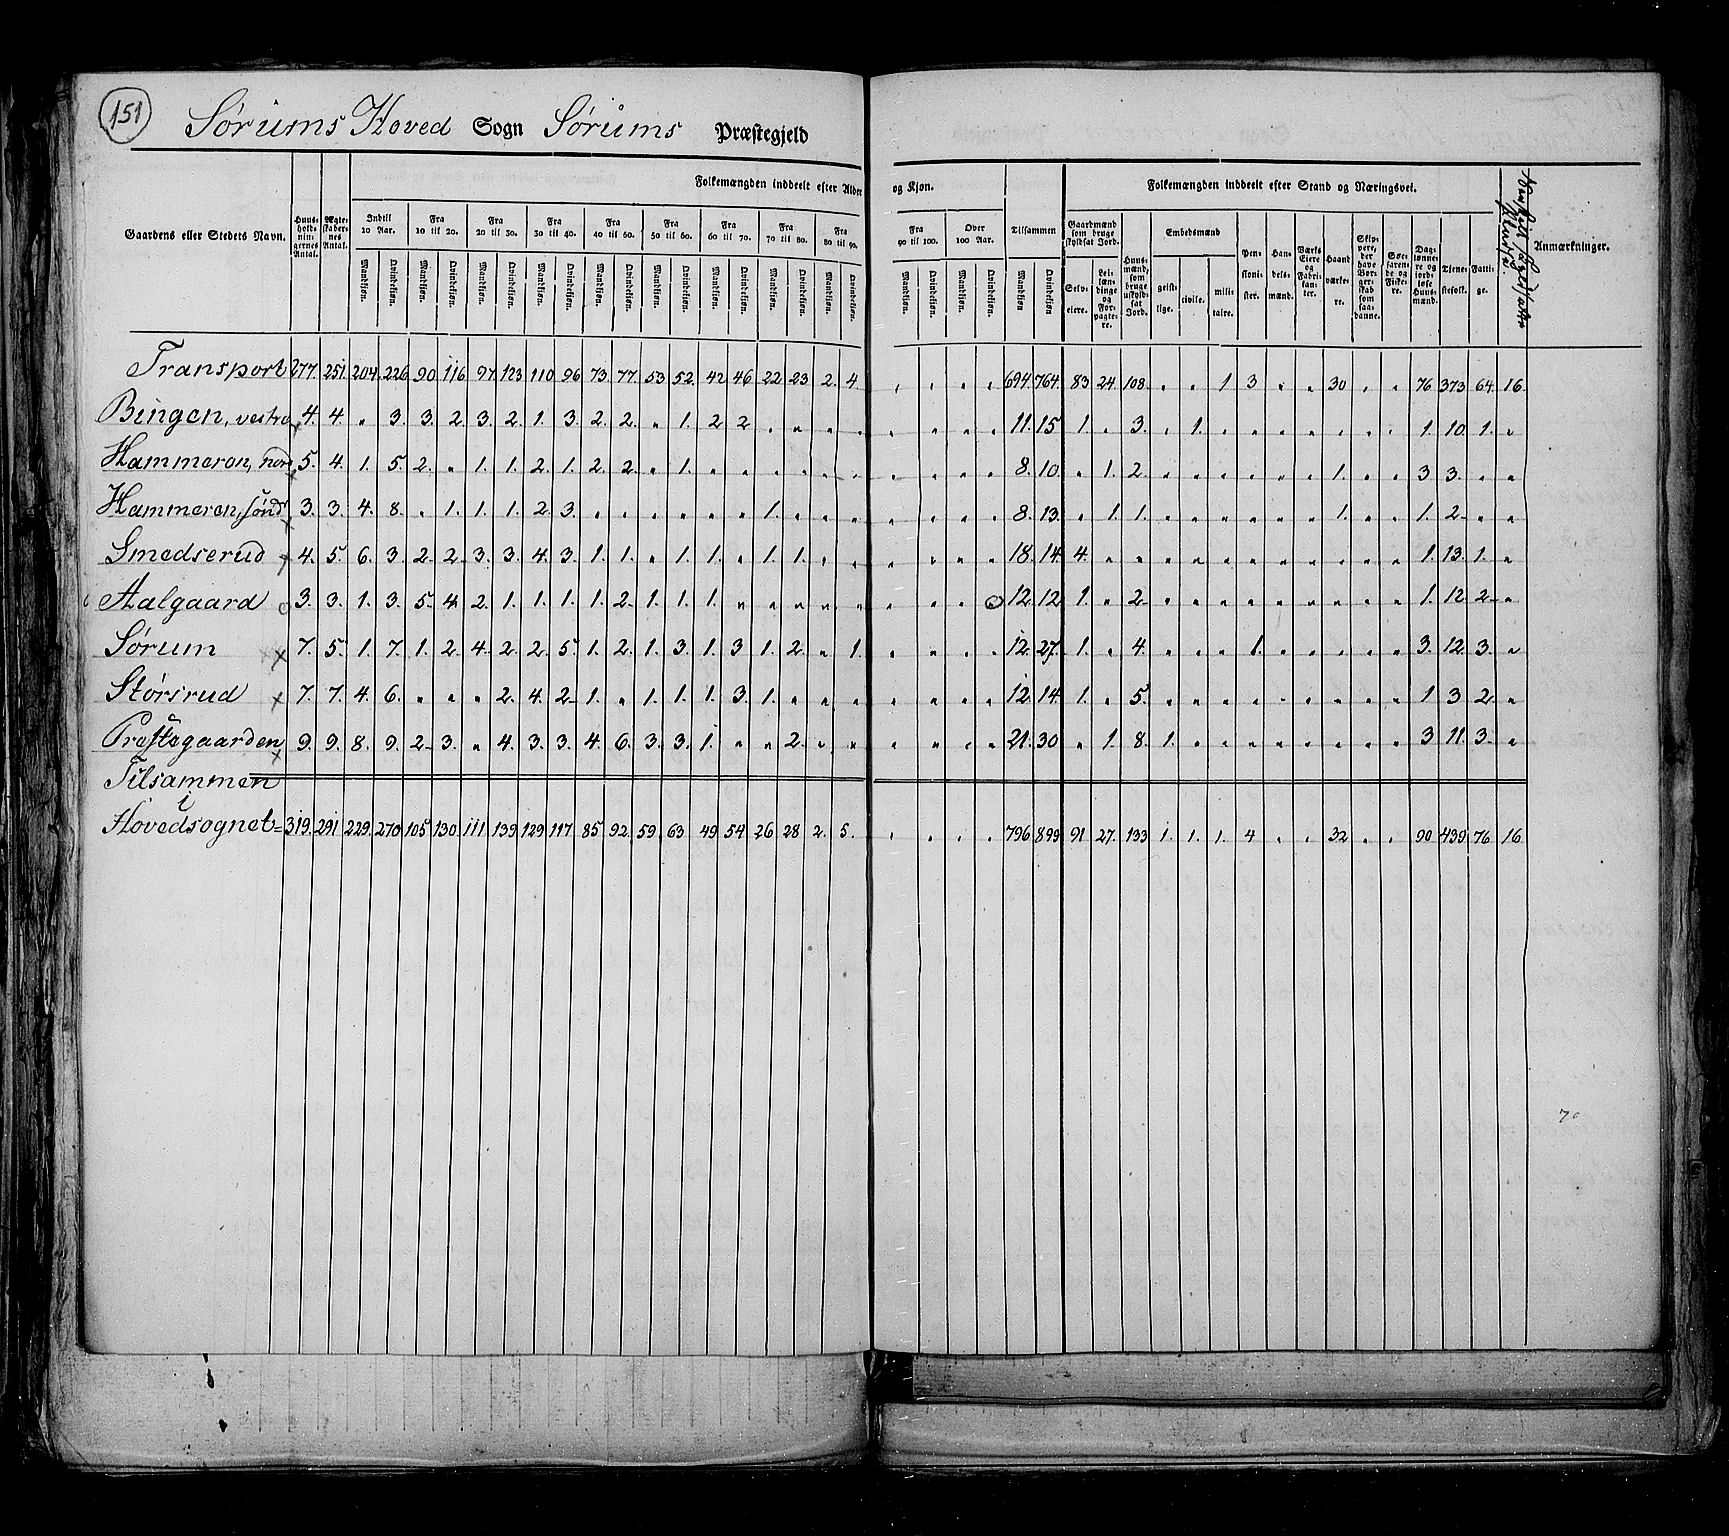 151
Sørums Hoved Sogn Sørums Præstegjeld
Folkemængden inddeelt efter Alder og Kjøn. Folkemængden inddeelt efter Stand og Næringsvei.
Gaardens eller Stedets Navn. Huusholdningernes Antal. Ægteskabernes Antal. Indtil 10 Aar. Fra 10 til 20. Fra 20 til 30. Fra 30 til 40. Fra 40 til 50. Fra 50 til 60. Fra 60 til 70. Fra 70 til 80. Fra 80 til 90. Fra 90 til 100. Over 100 Aar. Tilsammen Gaardmænd som bruge skyldsat Jord. Huusmænd, som bruge uskyldsat Jord. Embedsmænd Pensionister. Handelsmænd. Værks Eiere og Fabrikanter. Haandværkere. Skippere, der have Borgerskab som saadanne. Søefarende og Fiskere. Dagslønnere og jordløse Huusmænd. Tjenestefolk. Fattige. Anmærkninger.
Mandkjøn. Qvindekjøn. Mandkjøn. Qvindekjøn. Mandkjøn. Qvindekjøn. Mandkjøn. Qvindekjøn. Mandkjøn. Qvindekjøn. Mandkjøn. Qvindekjøn. Mandkjøn. Qvindekjøn. Mandkjøn. Qvindekjøn. Mandkjøn. Qvindekjøn. Mandkjøn. Qvindekjøn. Mandkjøn. Qvindekjøn. Mandkjøn. Qvindekjøn. Selveiere. Leilændinge og Forpagtere. geistlige. civile. militaire.
Transport 277. 251. 204. 226. 90. 116. 97. 123. 110. 96. 73. 77. 53. 52. 42. 46. 22. 23. 2. 4. " " " " 694. 764. 83. 24. 108. " " 1. 3. " " 30. " " 76. 373. 64. 16.
Bingen, vestre 4. 4. " 3. 3. 2. 3. 2. 1. 3. 2. 2. " 1. 2. 2. " " " " " " " " 11. 15. 1. " 3. " 1. " " " " " " " 1. 10. 1. "
Hammeren, nor 5. 4. 1. 5. 2. " 1. 1. 2. 1. 2. 2. " 1. " " " " " " " " " " 8. 10. " 1. 2. " " " " " " 1. " " 3. 3. " "
Hammeren, sønd 3. 3. 4. 8. " 1. 1. 1. 2. 3. " " " " " " 1. " " " " " " " 8. 13. " 1. 1. " " " " " " 1. " " 1. 2. " "
Smedserud 4. 5. 6. 3. 2. 2. 3. 3. 4. 3. 1. 1. " 1. 1. " 1. 1. " " " " " " 18. 14. 4. " " " " " " " " " " " 1. 13. 1. "
Aalgaard 3. 3. 1. 3. 5. 4. 2. 1. 1. 1. 1. 2. 1. 1. 1. " " " " " " " " " 12. 12. 1. " 2. " " " " " " " " " 1. 12. 2. "
Sørum 7. 5. 1. 7. 1. 2. 4. 2. 2. 5. 1. 2. 1. 3. 1. 3. 1. 2. " 1. " " " " 12. 27. 1. " 4. " " " 1. " " " " " 3. 12. 3. "
Størsrud 7. 7. 4. 6. " " " 2. 4. 2. 1. " 1. 1. 1. 3. 1. " " " " " " " 12. 14. 1. " 5. " " " " " " " " " 1. 3. 2. "
Præstegaarden 9. 9. 8. 9. 2. 3. " 4. 3. 3. 4. 6. 3. 3. 1. " " 2. " " " " " " 21. 30. " 1. 8. 1. " " " " " " " " 3. 11. 3. "
Tilsammen
i
Hovedsognet = 319. 291. 229. 270. 105. 130. 111. 139. 129. 117. 85. 92. 59. 63. 49. 54. 26. 28. 2. 5. " " " " 796. 899. 91. 27. 133. 1. 1. 1. 4. " " 32. " " 90. 439. 76. 16.